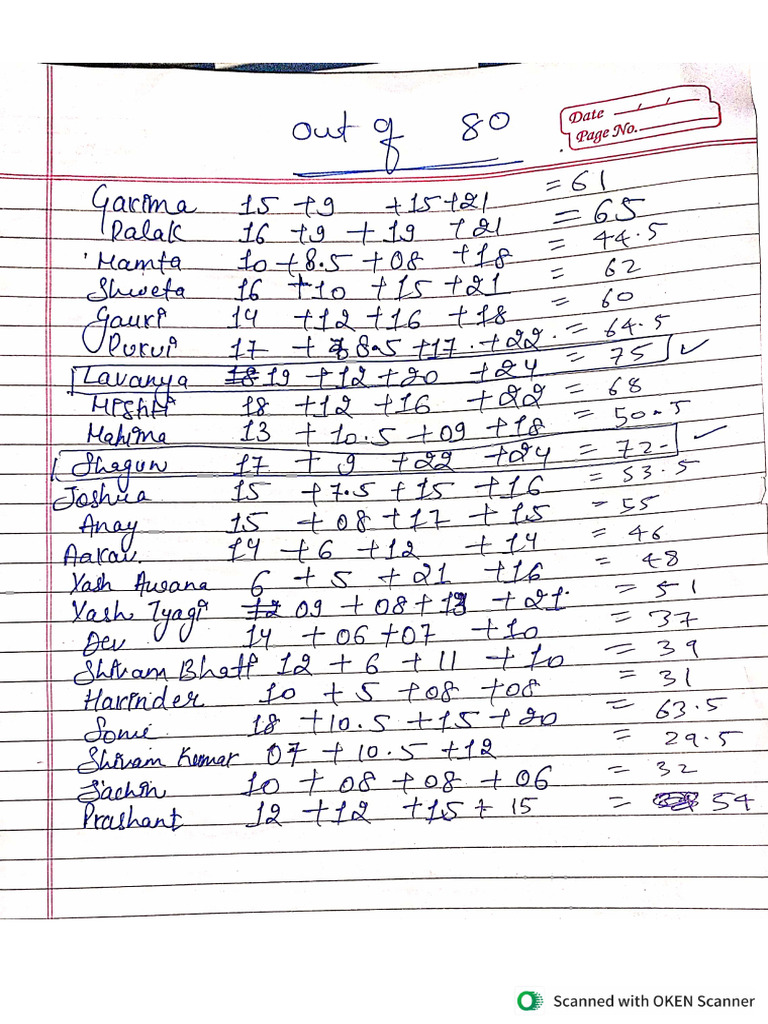 Date / /
Page No.
out of 80
Garima 15 +9 +15+21 = 61
Palak 16 +9 + 19 +21 = 65
Mamta 10 + 8.5 + 08 +18 = 44.5
Shweta 16 +10 +15 +21 = 62
Gauri 14 +12 +16 +18 = 60
Purvi 17 + 8.5 +17 +22 = 64.5
Lavanya 18 19 +12 + 20 +24 = 75 ✓
18 +12 +16 +22 = 68
Mahima 13 + 10.5 + 09 +18 = 50.5
Shagun 17 + 9 +22 +24 = 72 ✓
Joshua 15 +7.5 +15 +16 = 53.5
Anay 15 +08 +17 +15 = 55
Aarav. 14 +6 +12 +14 = 46
Yash Awana 6 + 5 + 21 +16 = 48
Yash Tyagi 12 09 + 08 + 13 +21 = 51
Dev 14 + 06 +07 +10 = 37
Shivam Bhati 12 + 6 + 11 +10 = 39
Harinder 10 + 5 +08 +08 = 31
18 +10.5 +15 +20 = 63.5
Shivam Kumar 07 + 10.5 +12 = 29.5
Sachin 10 + 08 + 08 + 06 = 32
Prashant 12 +12 +15 + 15 = 54
Scanned with OKEN Scanner